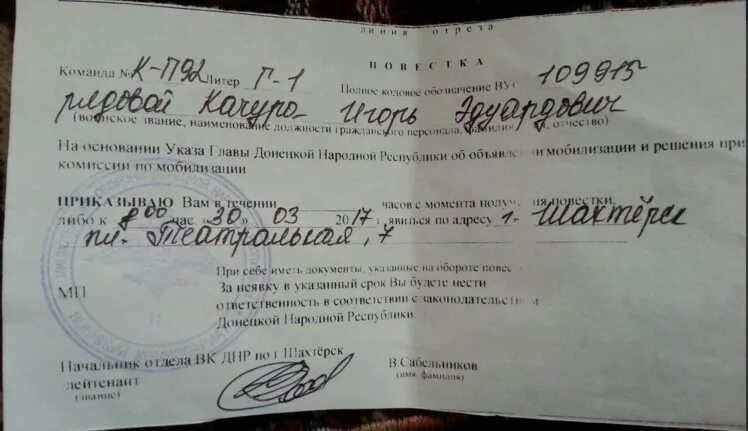 линия отреза
ПОВЕСТКА
Команда № К-П92 Литер Г-1 Полное кодовое обозначение ВУС 109915
рядовой Качуро Игорь Эдуардович
(воинское звание, наименование должности гражданского персонала, фамилия, отчество)
На основании Указа Главы Донецкой Народной Республики об объявлении мобилизации и решения при
комиссии по мобилизации
ПРИКАЗЫВАЮ Вам в течении часов с момента получения повестки,
либо к 8 00 час «30» 03 2017 г. явиться по адресу г. Шахтёрск
пл. Театральная, 7
При себе иметь документы, указанные на обороте повес
МП За неявку в указанный срок Вы будете нести
ответственность в соответствии с законодательством
Донецкой Народной Республики.
Начальник отдела ВК ДНР по г.Шахтёрск
лейтенант В.Сабельников
(звание) (имя, фамилия)